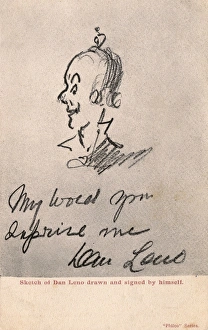 My word you
surprise me
Dan Leno
Sketch of Dan Leno drawn and signed by himself.
"Philco" Series.